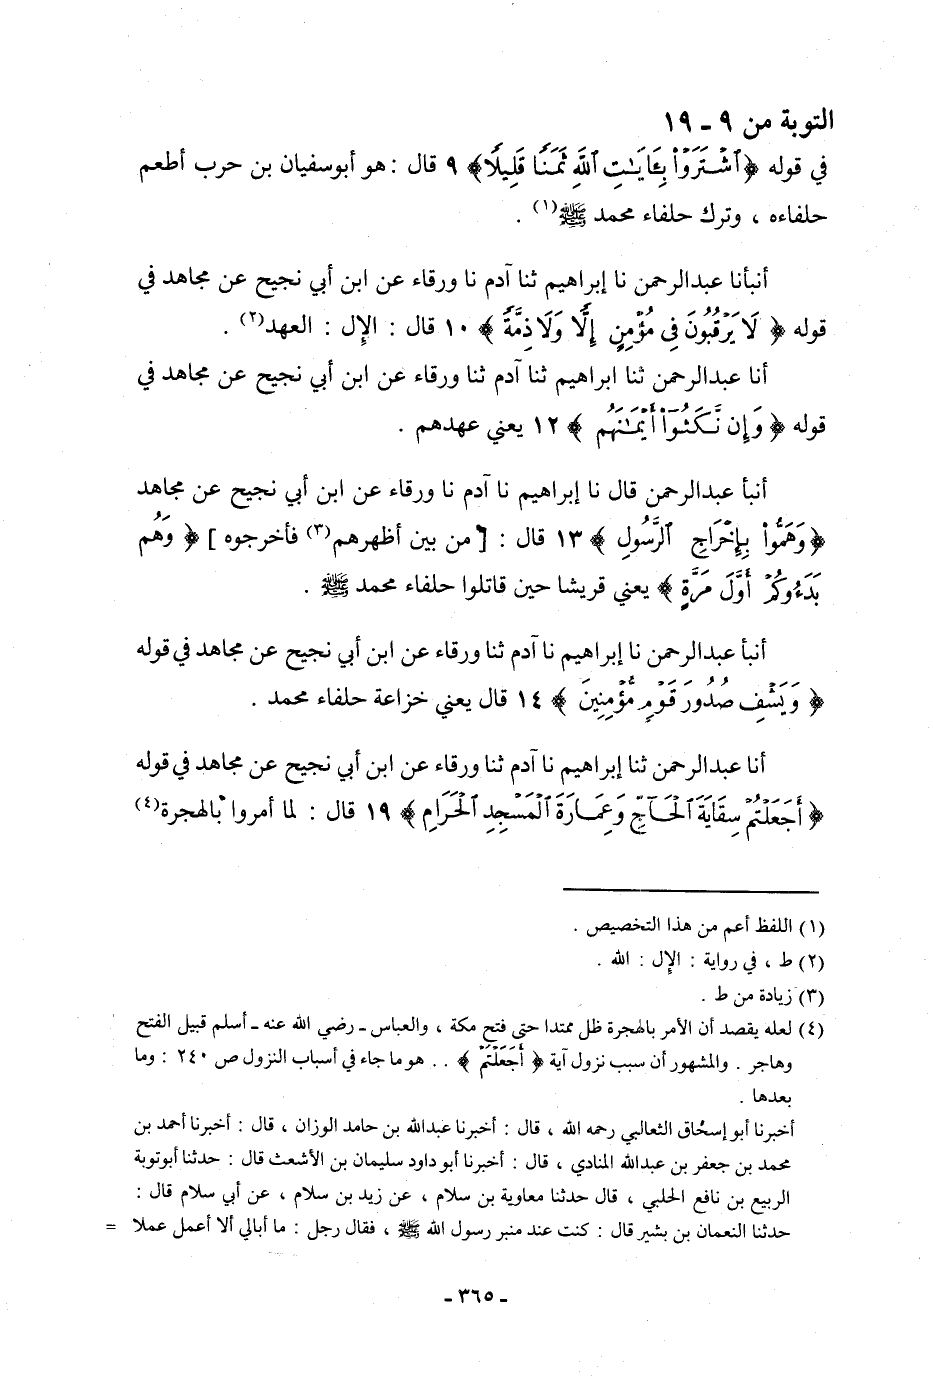 التوبة من ٩ ـ ١٩
في قوله ﴿ ٱشْتَرَوْا۟ بِـَٔايَـٰتِ ٱللَّهِ ثَمَنًا قَلِيلًا ﴾ ٩ قال : هو أبوسفيان بن حرب أطعم
حلفاءه ، وترك حلفاء محمد ﷺ(١) .
أنبأنا عبدالرحمن نا إبراهيم ثنا آدم نا ورقاء عن ابن أبي نجيح عن مجاهد في
قوله ﴿ لَا يَرْقُبُونَ فِى مُؤْمِنٍ إِلًّا وَلَا ذِمَّةً ﴾ ١٠ قال : الإِل : العهد(٢) .
أنا عبدالرحمن ثنا ابراهيم ثنا آدم ثنا ورقاء عن ابن أبي نجيح عن مجاهد في
قوله ﴿ وَإِن نَّكَثُوٓا۟ أَيْمَـٰنَهُم ﴾ ١٢ يعني عهدهم .
أنبأ عبدالرحمن قال نا إبراهيم نا آدم نا ورقاء عن ابن أبي نجيح عن مجاهد
﴿ وَهَمُّوا۟ بِإِخْرَاجِ ٱلرَّسُولِ ﴾ ١٣ قال : [ من بين أظهرهم(٣) فأخرجوه ] ﴿ وَهُم
بَدَءُوكُمْ أَوَّلَ مَرَّةٍ ﴾ يعني قريشا حين قاتلوا حلفاء محمد ﷺ .
أنبأ عبدالرحمن نا إبراهيم نا آدم ثنا ورقاء عن ابن أبي نجيح عن مجاهد في قوله
﴿ وَيَشْفِ صُدُورَ قَوْمٍ مُّؤْمِنِينَ ﴾ ١٤ قال يعني خزاعة حلفاء محمد .
أنا عبدالرحمن ثنا إبراهيم نا آدم ثنا ورقاء عن ابن أبي نجيح عن مجاهد في قوله
﴿ أَجَعَلْتُمْ سِقَايَةَ ٱلْحَآجِّ وَعِمَارَةَ ٱلْمَسْجِدِ ٱلْحَرَامِ ﴾ ١٩ قال : لما أمروا بالهجرة(٤)
(١) اللفظ أعم من هذا التخصيص .
(٢) ط ، في رواية : الإِل : الله .
(٣) زيادة من ط .
(٤) لعله يقصد أن الأمر بالهجرة ظل ممتدا حتى فتح مكة ، والعباس ـ رضي الله عنه ـ أسلم قبيل الفتح
وهاجر . والمشهور أن سبب نزول آية ﴿ أَجَعَلْتُمْ ﴾ . . هو ما جاء في أسباب النزول ص ٢٤٠ : وما
بعدها .
أخبرنا أبو إسحٰق الثعالبي رحمه الله ، قال : أخبرنا عبدالله بن حامد الوزان ، قال : أخبرنا أحمد بن
محمد بن جعفر بن عبدالله المنادي ، قال : أخبرنا أبو داود سليمان بن الأشعث قال : حدثنا أبوتوبة
الربيع بن نافع الحلبي ، قال حدثنا معاوية بن سلام ، عن زيد بن سلام ، عن أبي سلام قال :
حدثنا النعمان بن بشير قال : كنت عند منبر رسول الله ﷺ ، فقال رجل : ما أبالي ألا أعمل عملا =
ـ ٣٦٥ ـ